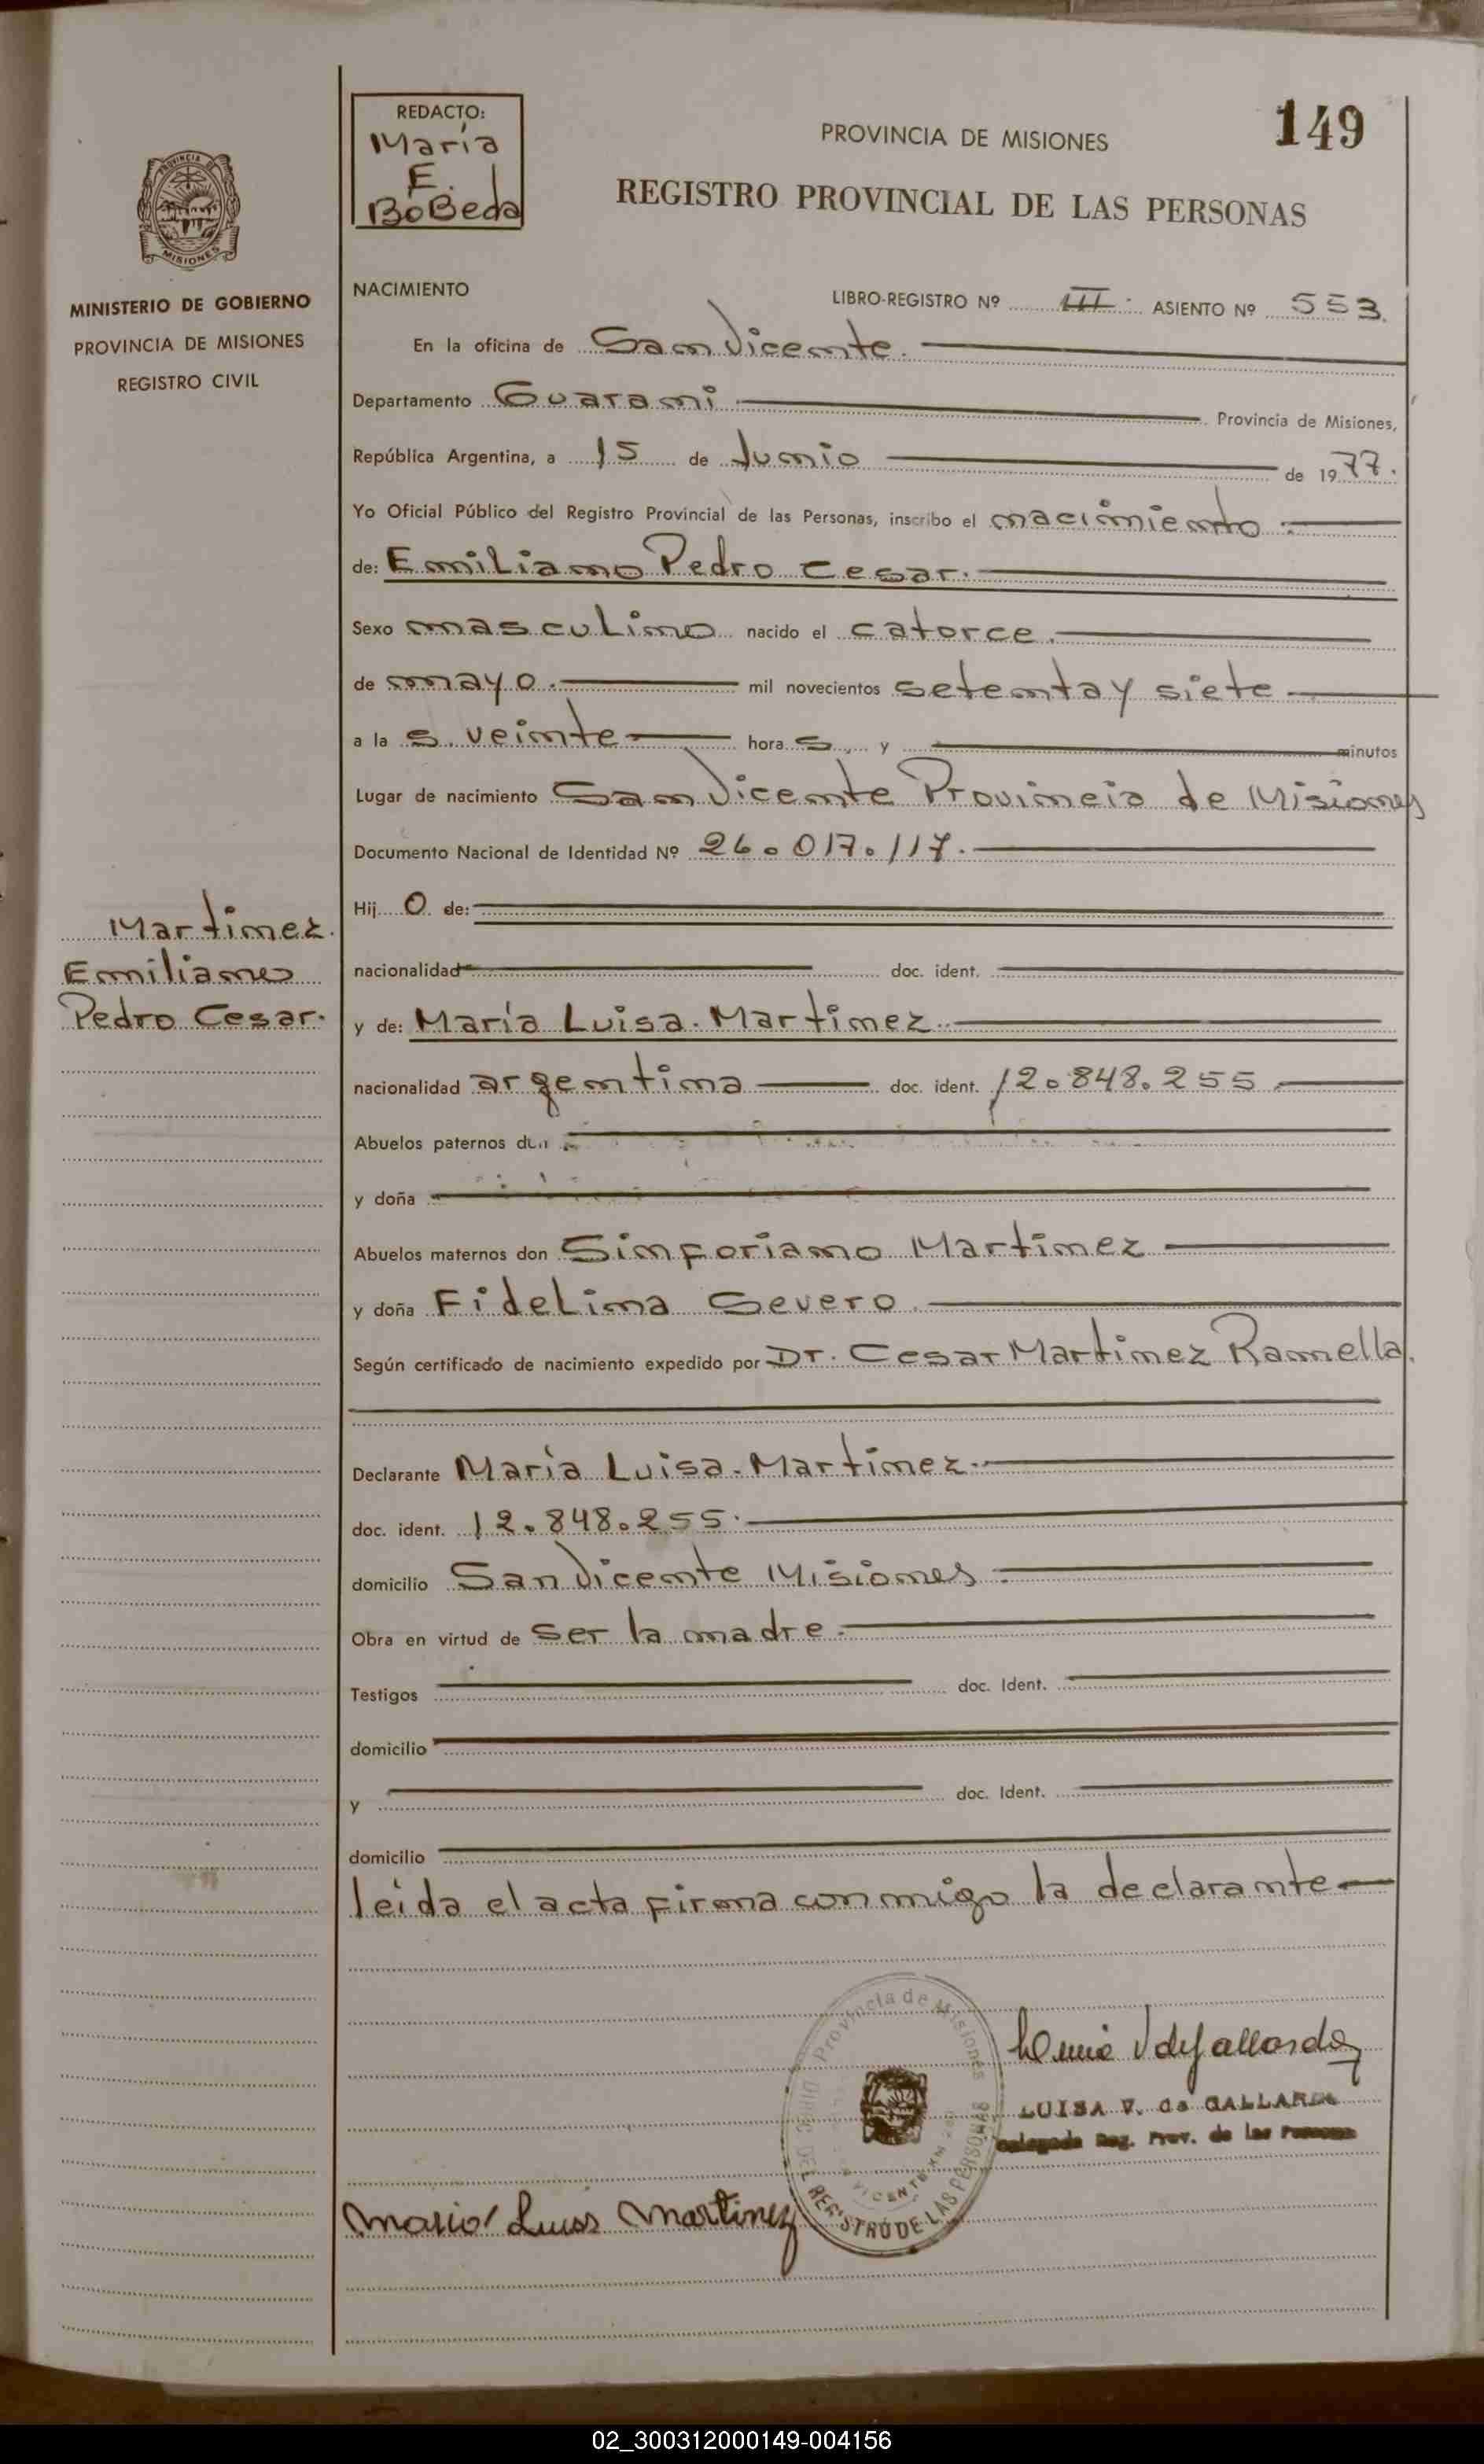 REDACTO:
María
E.
BoBeda
PROVINCIA DE MISIONES
149
REGISTRO PROVINCIAL DE LAS PERSONAS
PROVINCIA DE
MISIONES
MINISTERIO DE GOBIERNO
PROVINCIA DE MISIONES
REGISTRO CIVIL
NACIMIENTO
LIBRO-REGISTRO Nº III. ASIENTO Nº 553.
En la oficina de San Vicente.
Departamento Guaraní Provincia de Misiones,
República Argentina, a 15 de Junio de 1977.
Yo Oficial Público del Registro Provincial de las Personas, inscribo el nacimiento.
de: Emiliano Pedro Cesar.
Sexo masculino nacido el catorce.
de mayo. mil novecientos setenta y siete
a la s. veinte hora s y minutos
Lugar de nacimiento San Vicente Provincia de Misiones
Documento Nacional de Identidad Nº 26.017.117.
Hij o de:
nacionalidad doc. ident.
Martinez.
Emiliano
Pedro Cesar.
y de: María Luisa. Martinez.
nacionalidad argentina doc. ident. 12.848.255
Abuelos paternos don
y doña
Abuelos maternos don Simforiano Martinez
y doña Fidelina Severo
Según certificado de nacimiento expedido por Dr. Cesar Martinez Ramella.
Declarante María Luisa. Martinez.
doc. ident. 12.848.255.
domicilio San Vicente Misiones
Obra en virtud de ser la madre.
Testigos doc. Ident.
domicilio
y doc. Ident.
domicilio
leída el acta firma conmigo la declarante
Provincia de Misiones
DEL REGISTRO DE LAS PERSONAS
VICENTE
LUISA V. de GALLARDO
Delegada Reg. Prov. de las Personas
Maria Luisa Martinez
02_300312000149-004156